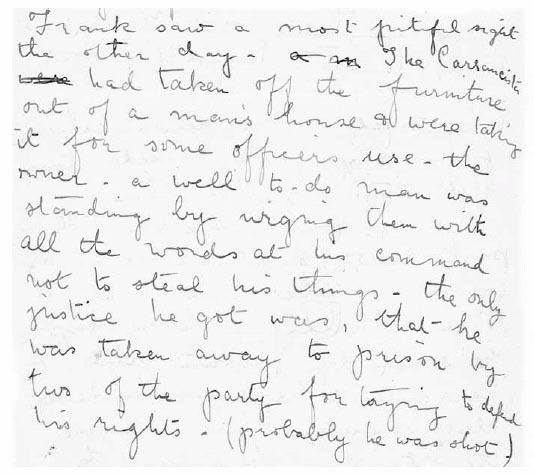 Frank saw a most pitiful sight
the other day - a m The Carrancistas
were had taken off the furniture
out of a man's house & were taking
it for some officers use - the
owner - a well to-do man was
standing by urging them with
all the words at his command
not to steal his things - the only
justice he got was, that he
was taken away to prison by
two of the party for taying to defend
his rights - (probably he was shot.)